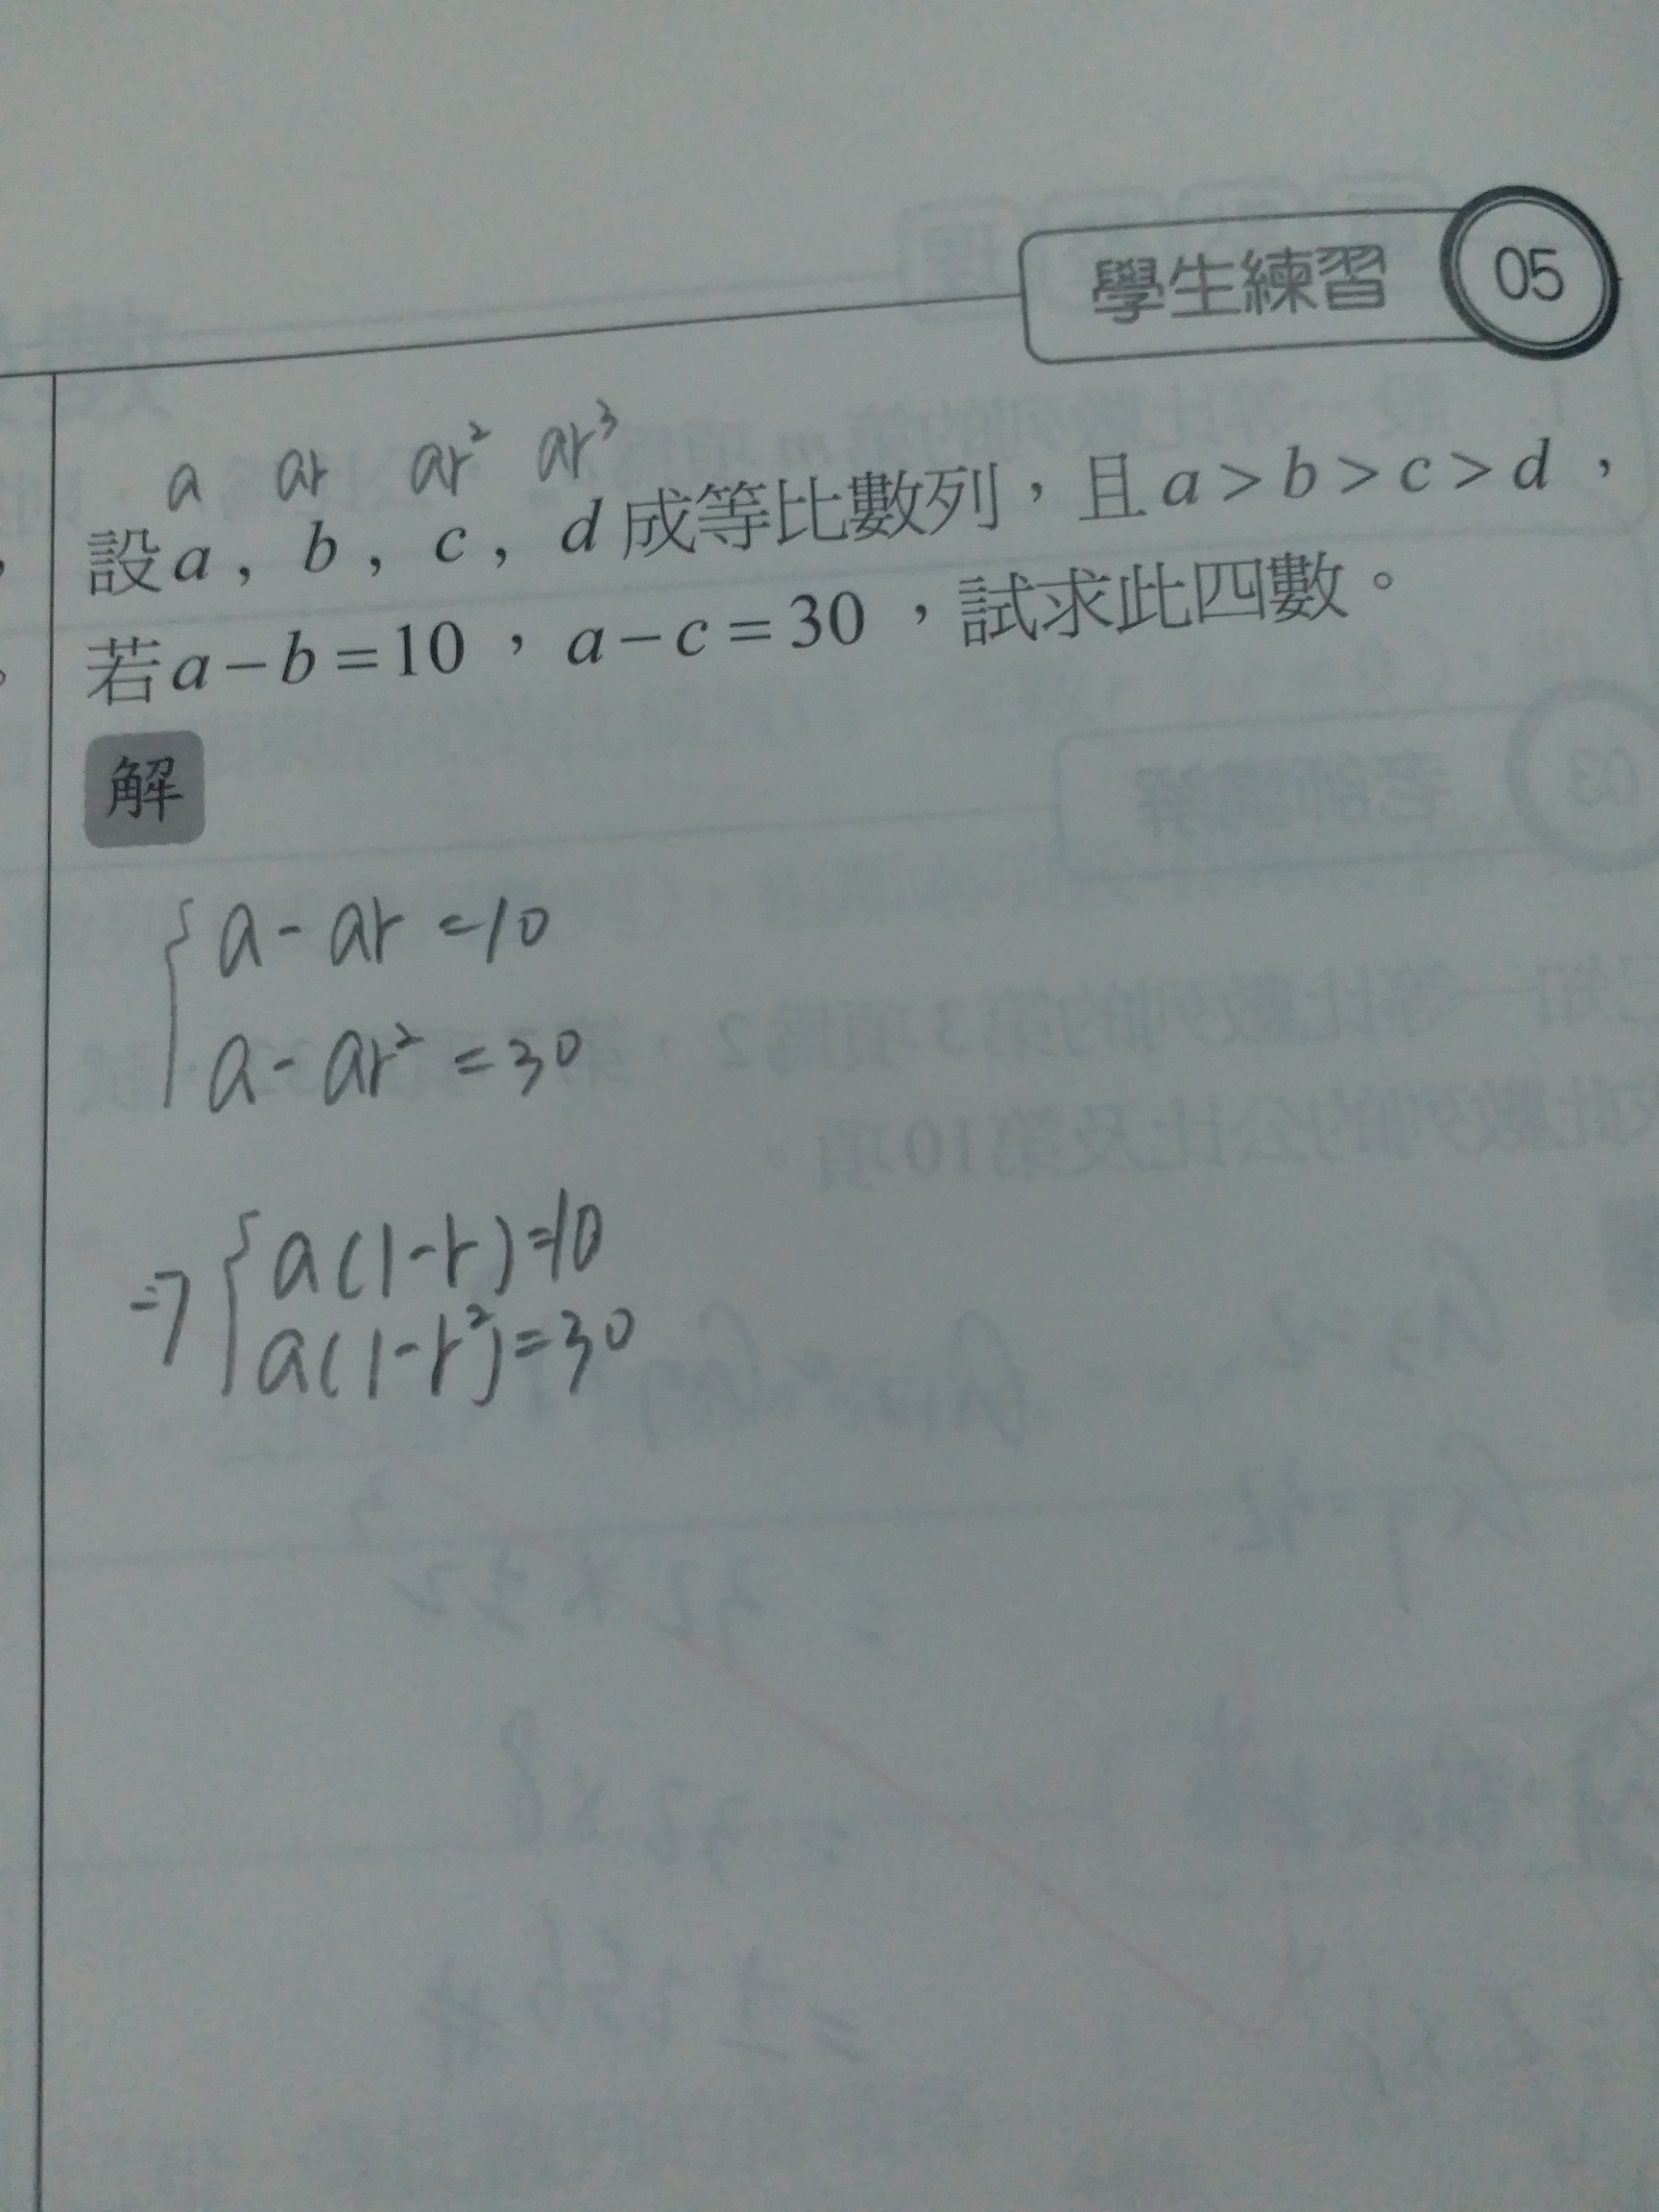 學生練習 05
a ar ar² ar³
設a，b，c，d成等比數列，且a>b>c>d，
若a−b=10，a−c=30，試求此四數。
解
{a-ar=10
a-ar²=30
⇒{a(1-r)=10
a(1-r²)=30